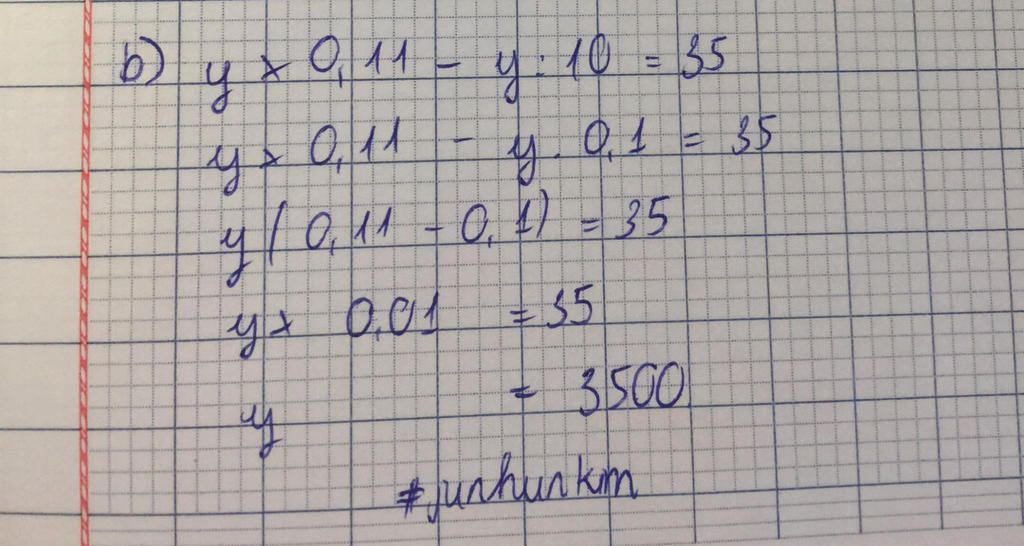 b) y x 0,11 - y : 10 = 35
y x 0,11 - y . 0,1 = 35
y ( 0,11 - 0,1) = 35
y x 0,01 = 35
y = 3500
#junhunkm